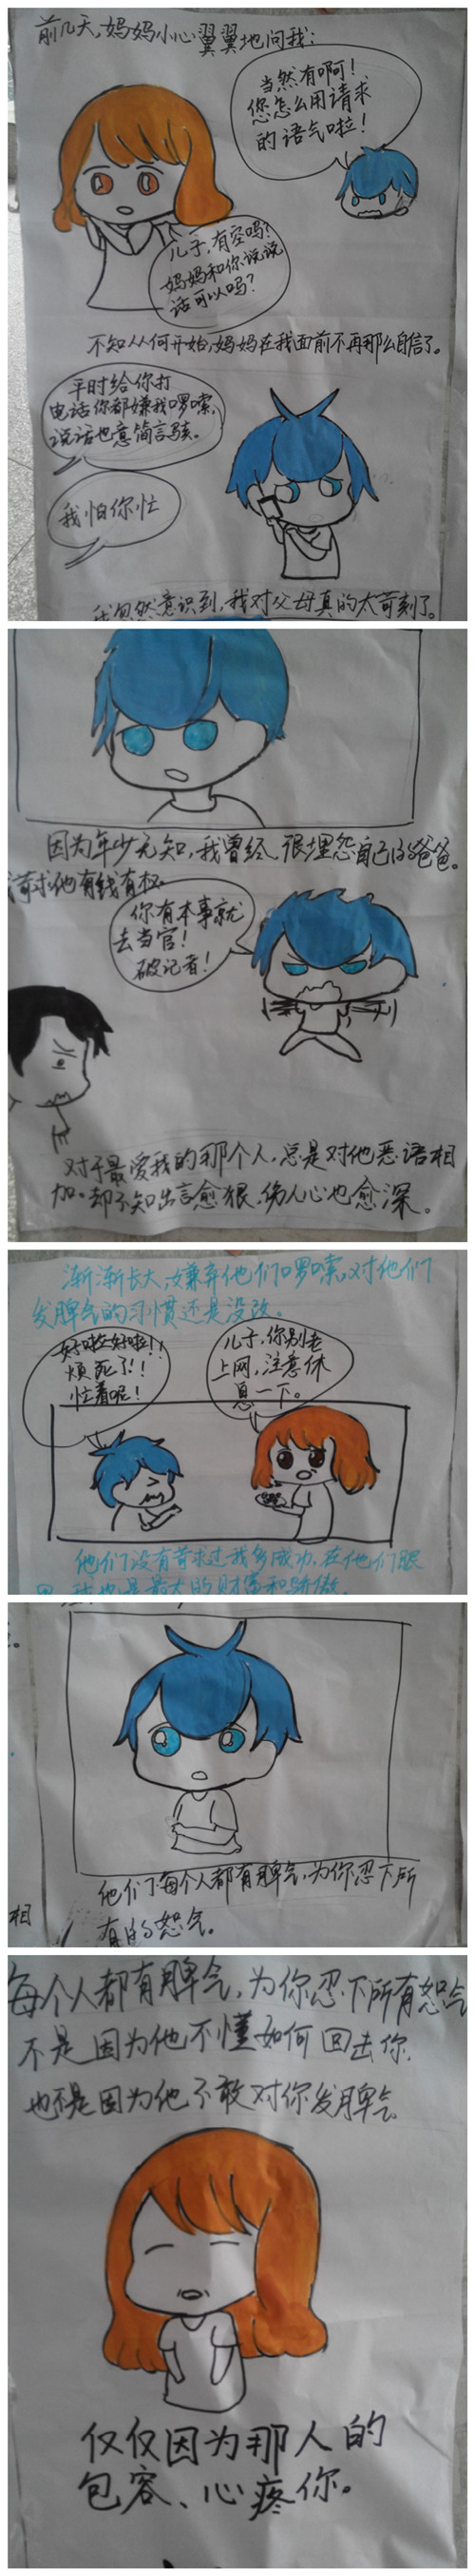 前几天,妈妈小心翼翼地问我:
当然有啊!
您怎么用请求
的语气啦!
儿子,有空吗?
妈妈和你说说
话可以吗?
不知从何开始,妈妈在我面前不再那么自信了。
平时给你打
电话你都嫌我啰嗦,
说话也意简言骇。
我怕你忙
我忽然意识到,我对父母真的太苛刻了。
因为年少无知,我曾经很埋怨自己的爸爸。
苛求他有钱有权
你有本事就
去当官!
破记者!
对于最爱我的那个人,总是对他恶语相
加。却不知出言愈狠,伤人心也愈深。
渐渐长大,嫌弃他们啰嗦,对他们
发脾气的习惯还是没改。
好啦好啦!!
烦死了!!
忙着呢!
儿子,你别老
上网,注意休
息一下。
他们没有苛求过我多成功,在他们眼
我也是最大的财富和骄傲.
他们每个人都有脾气,为你忍下所
有的怒气。
相
每个人都有脾气,为你忍下所有怒气
不是因为他不懂如何回击你,
也不是因为他不敢对你发脾气
仅仅因为那人的
包容、心疼你。